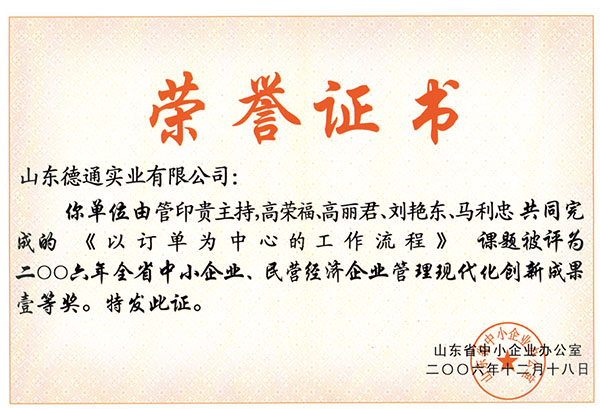 荣誉证书
山东德通实业有限公司：
你单位由管印贵主持,高荣福、高丽君、刘艳东、马利忠共同完
成的《以订单为中心的工作流程》课题被评为
二〇〇六年全省中小企业、民营经济企业管理现代化创新成果
壹等奖。特发此证。
山东省中小企业办公室
二〇〇六年十二月十八日